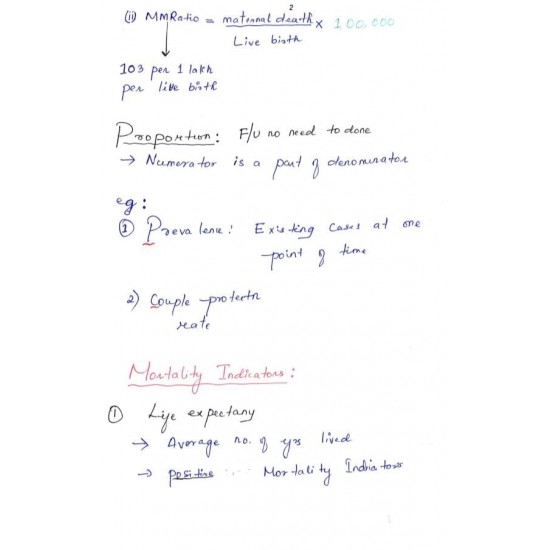 (ii) MMRatio = maternal death / Live birth × 100,000
2
103 per 1 lakh
per live birth
Proportion: F/U no need to done
→ Numerator is a part of denominator
eg:
① Prevalence: Existing cases at one
point of time
2) Couple protectn
rate
Mortality Indicators:
① Life expectany
→ Average no. of yrs lived
→ positive .... Mortality Indicators